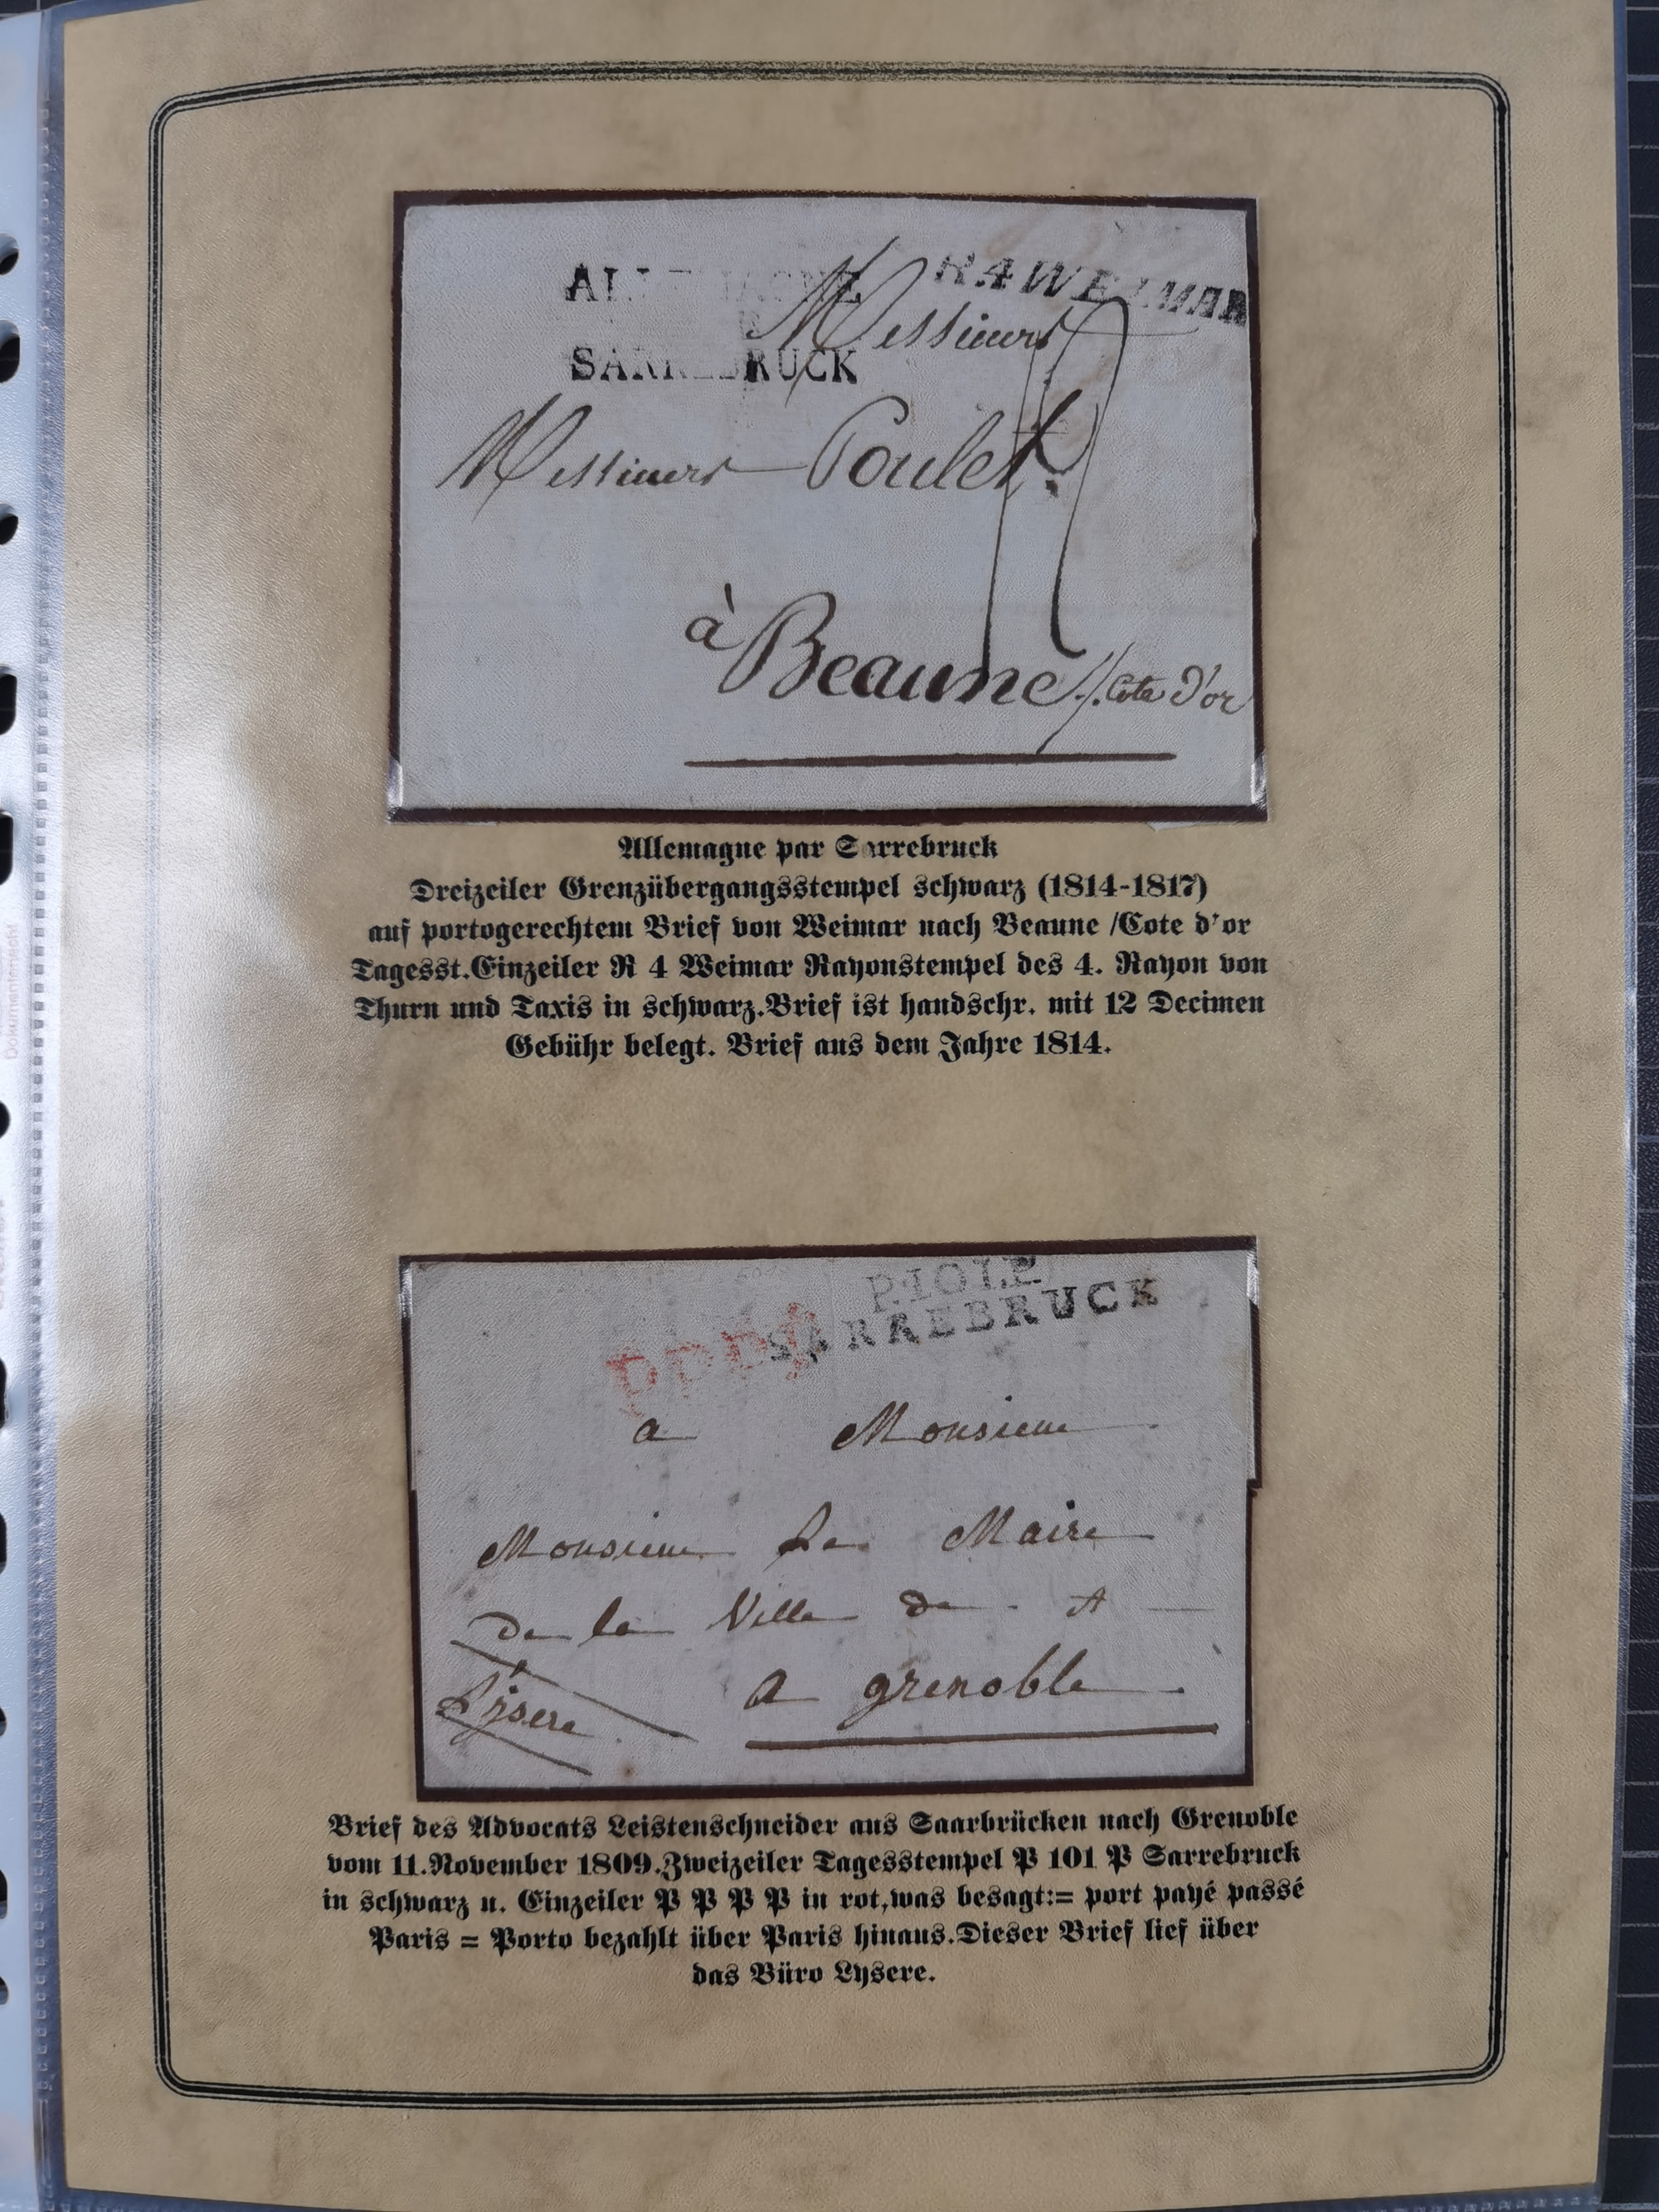 R.4 WEIMAR
Messieurs
SARREBRUCK
Messieurs Poulet.
à Beaune /. Cote d'or
Allemagne par Sarrebruck
Dreizeiler Grenzübergangsstempel schwarz (1814-1817)
auf portogerechtem Brief von Weimar nach Beaune /Cote d'or
Tagesst.Einzeiler R 4 Weimar Rayonstempel des 4. Rayon von
Thurn und Taxis in schwarz.Brief ist handschr. mit 12 Decimen
Gebühr belegt. Brief aus dem Jahre 1814.
P.101.P
SARREBRUCK
PPPP
a Monsieur
Monsieur Le Maire
De la Ville de
L'ysere a grenoble.
Brief des Advocats Leistenschneider aus Saarbrücken nach Grenoble
vom 11.November 1809.Zweizeiler Tagesstempel P 101 P Sarrebruck
in schwarz u. Einzeiler P P P P in rot,was besagt:= port payé passé
Paris = Porto bezahlt über Paris hinaus.Dieser Brief lief über
das Büro Lysere.